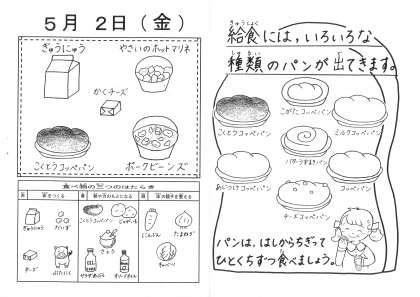 5月 2日(金)
ぎゅうにゅう
やさいのホットマリネ
かくチーズ
こくとうコッペパン
ポークビーンズ
食べ物の三つのはたらき
ぎゅうにゅう
だいず
チーズ
ぶたにく
こくとうコッペパン
じゃがいも
さとう
サラダあぶら
オリーブオイル
にんじん
たまねぎ
キャベツ
きゅうしょく
給食には、いろいろな
しゅるい
種類のパンが出てきます。
こがたコッペパン
こくとうコッペパン
ミルクコッペパン
バターうずまきパン
あじつけコッペパン
コッペパン
チーズコッペパン
パンは、はしからちぎって
ひとくちずつ食べましょう。